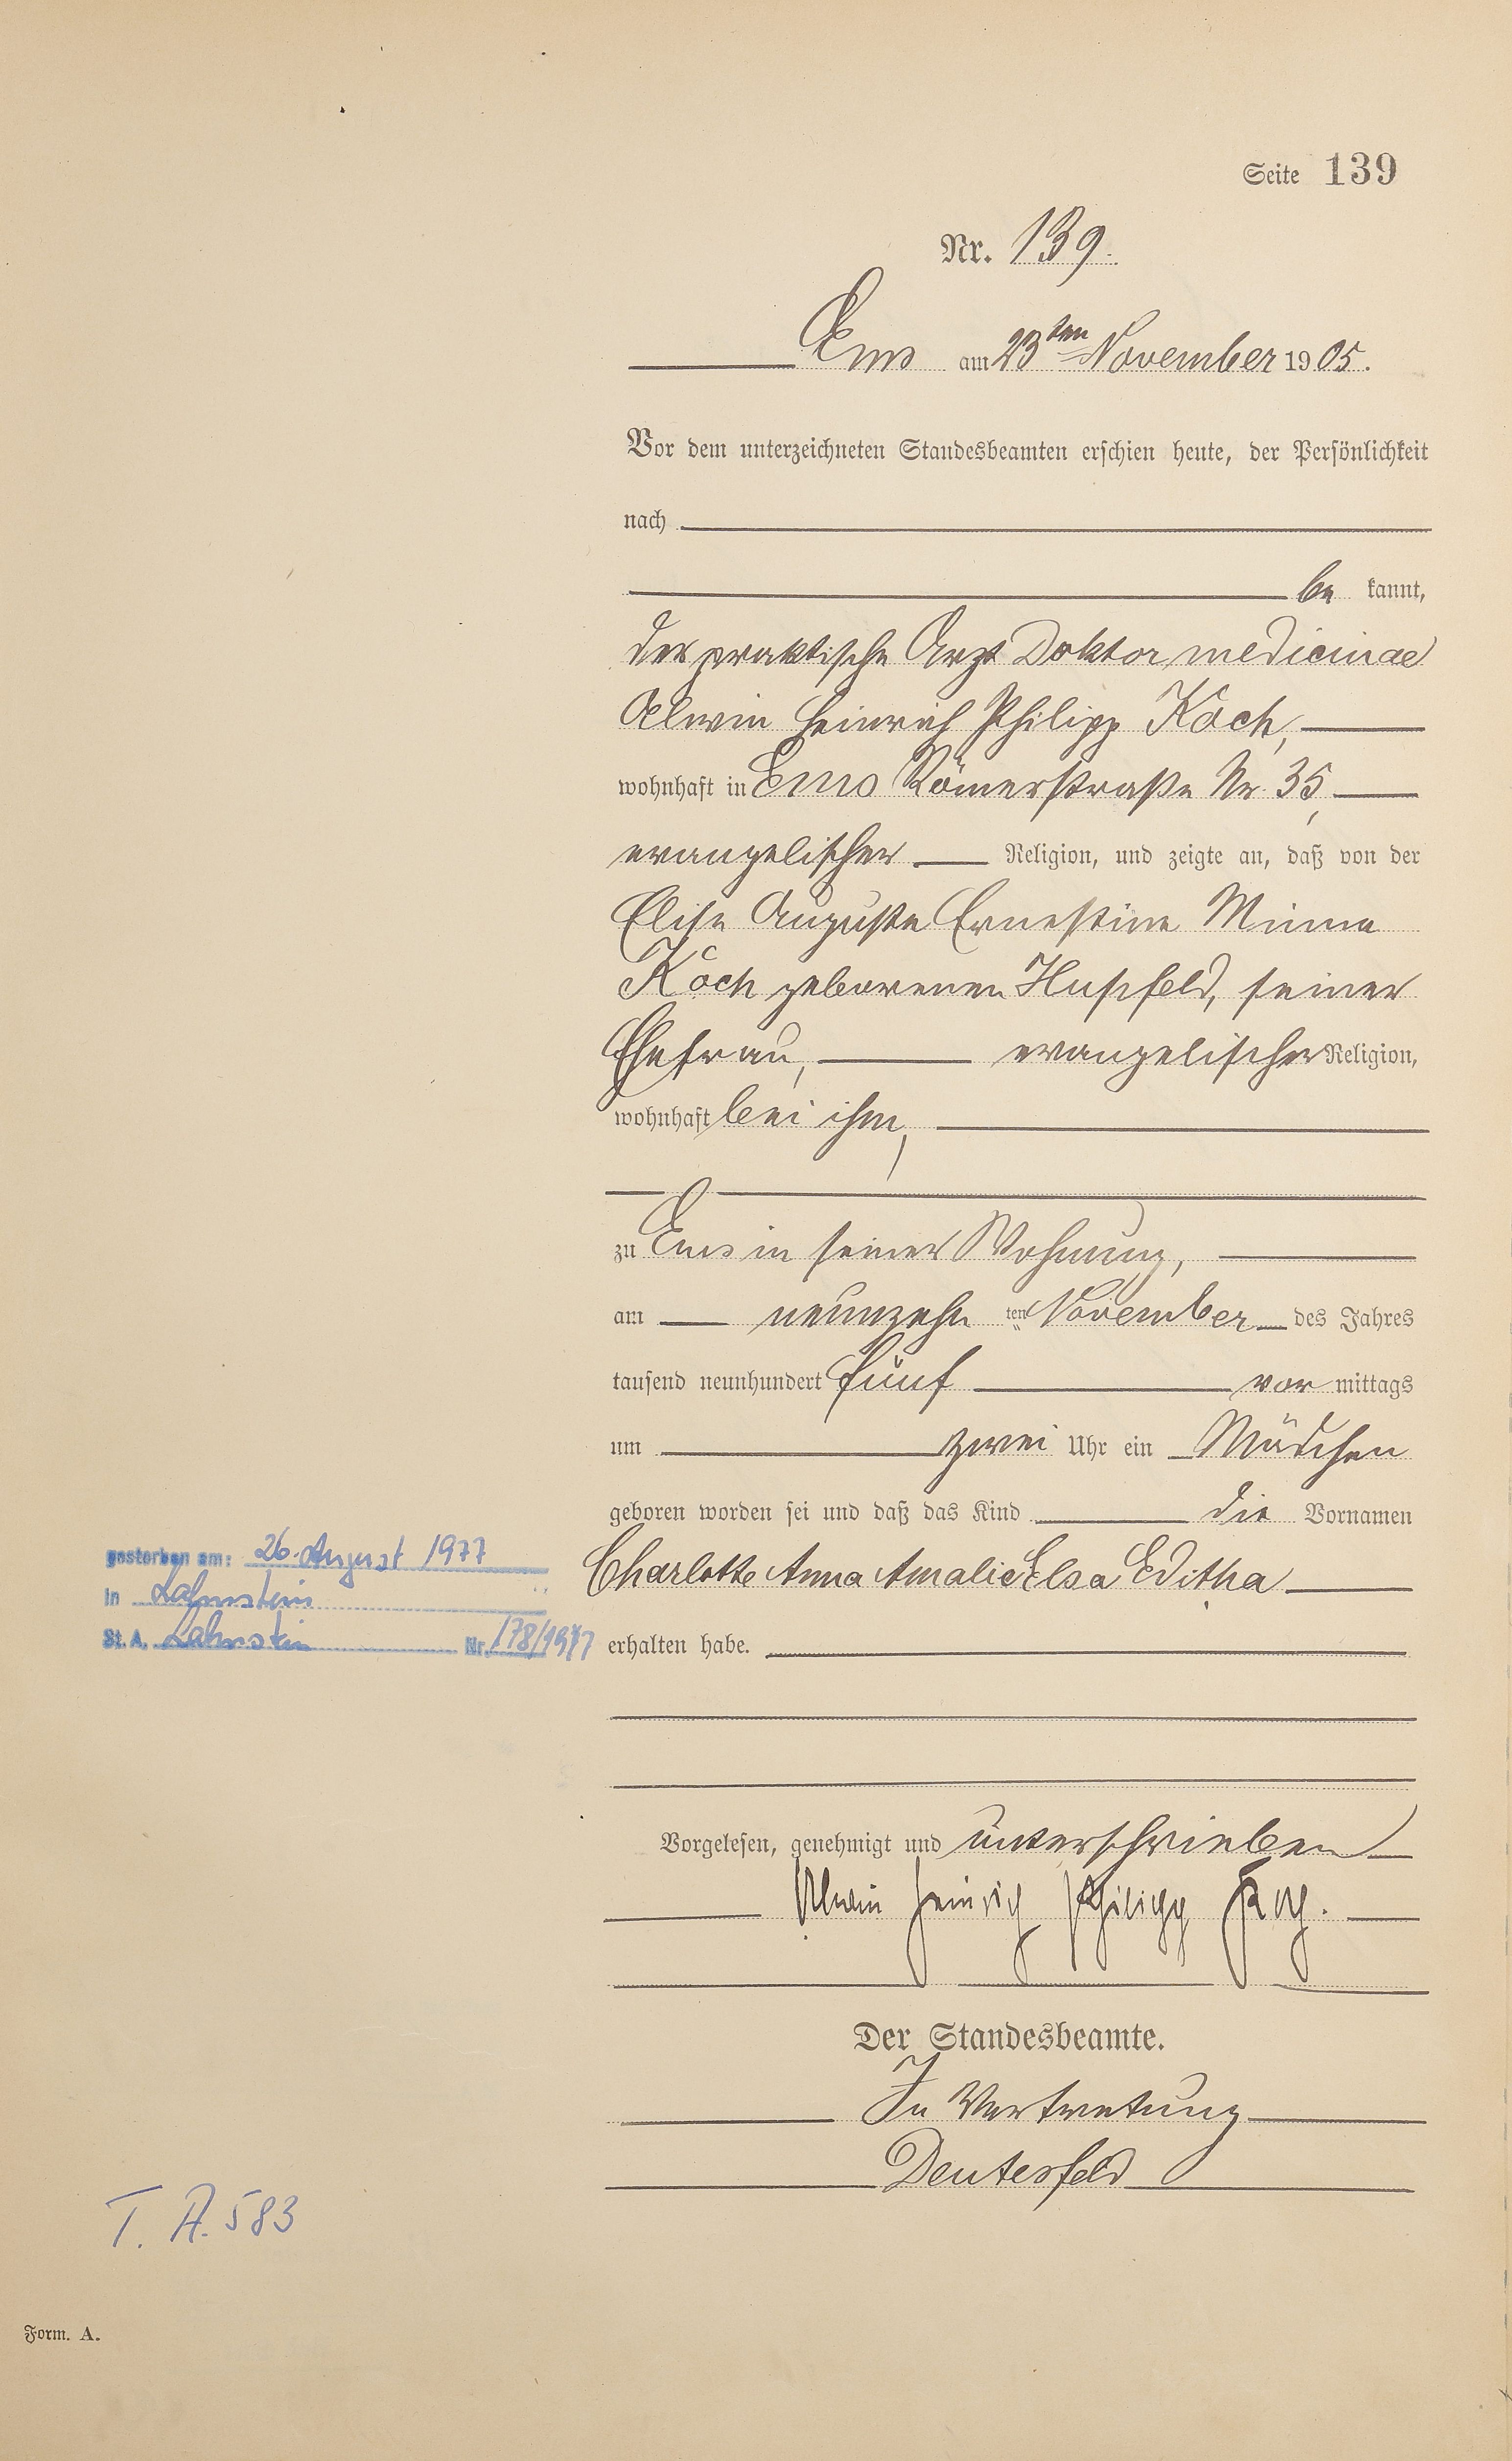 Seite 139
Nr. 139.
Ems am 23ten November 1905.
Vor dem unterzeichneten Standesbeamten erschien heute, der Persönlichkeit
nach
be kannt,
der praktische Arzt Doktor medicinae
Alwin Heinrich Philipp Koch,
wohnhaft in Ems Römerstraße Nr. 35,
evangelischer Religion, und zeigte an, daß von der
Elise Auguste Ernestine Minna
Koch geborenen Hupfeld, seiner
Ehefrau, evangelischer Religion,
wohnhaft bei ihm,
zu Ems in seiner Wohnung,
am neunzehn ten November des Jahres
tausend neunhundert fünf vor mittags
um zwei Uhr ein Mädchen
geboren worden sei und daß das Kind die Vornamen
gestorben am: 26. August 1977
Charlotte Anna Amalie Elsa Editha
in Lahnstein
St. A. Lahnstein Nr. 178/1977
erhalten habe.
Vorgelesen, genehmigt und unterschrieben
Alwin Heinrich Philipp Koch.
Der Standesbeamte.
In Vertretung
Deutesfeld
T. A. 583
Form. A.